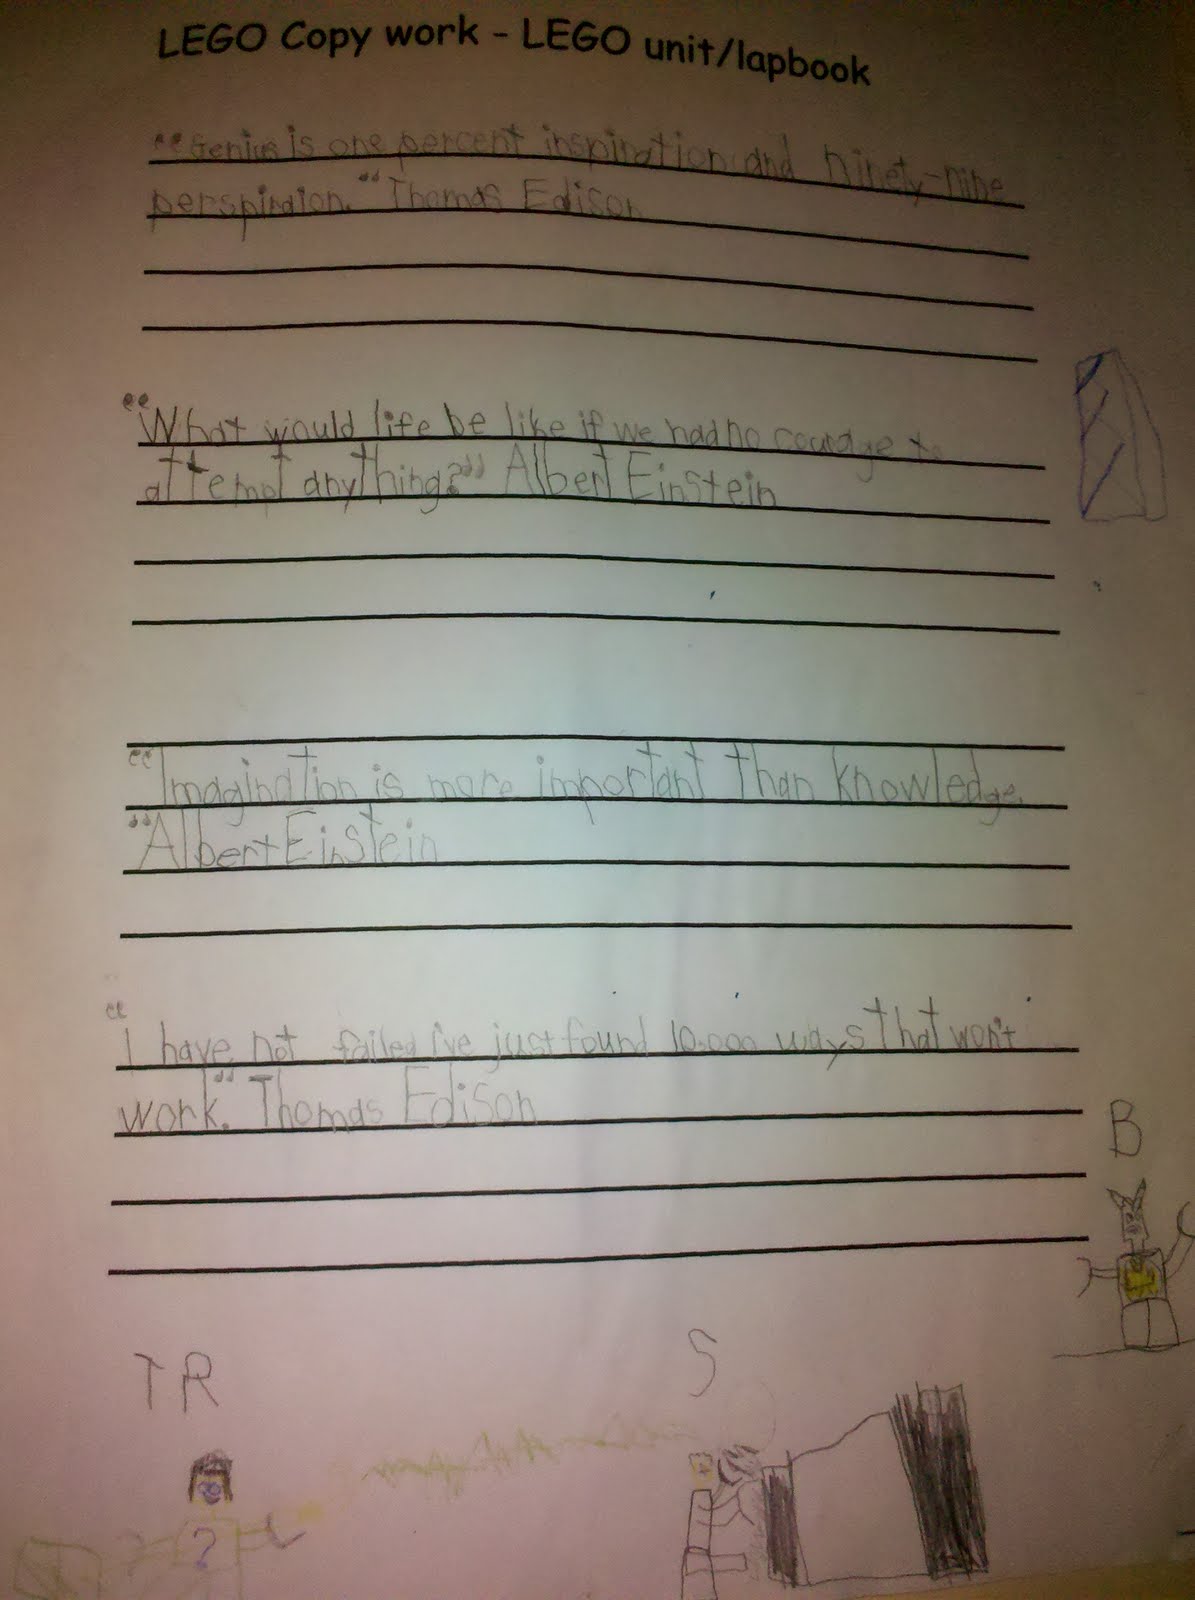 LEGO Copy work - LEGO unit/lapbook
"Genius is one percent inspiration and ninety-nine
perspiration." Thomas Edison
"What would life be like if we had no courage to
attempt anything?" Albert Einstein
"Imagination is more important than knowledge.
"Albert Einstein
"I have not failed I've just found 10,000 ways that won't
work." Thomas Edison
B
TR
S
?